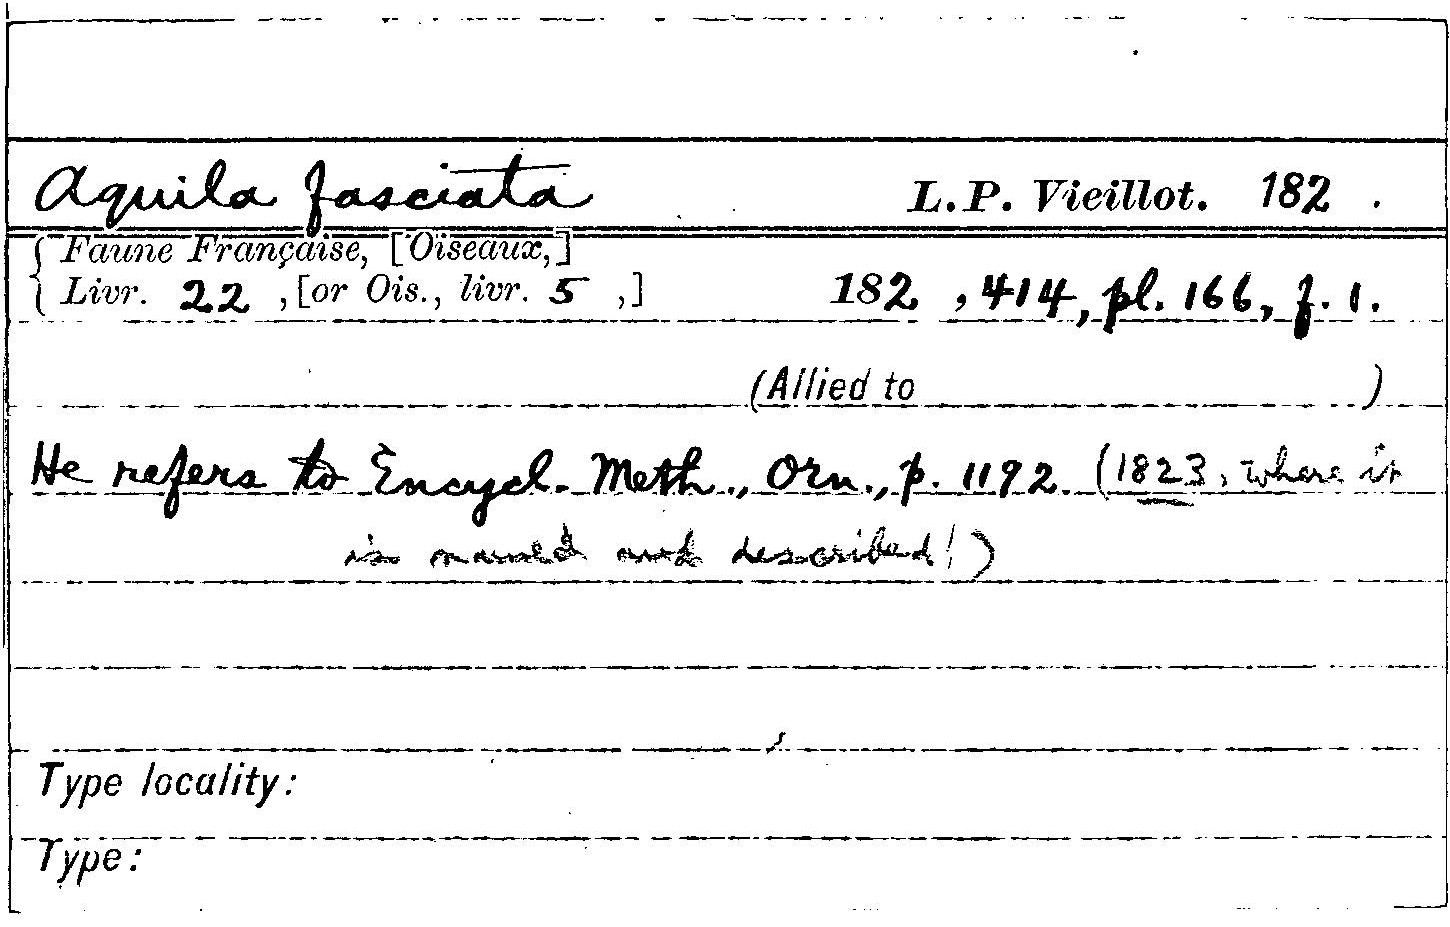 Aquila fasciata L.P. Vieillot. 182 .
Faune Française, [Oiseaux,]
Livr. 22 , [or Ois., livr. 5 ,] 182 , 414, pl. 166, f. 1.
(Allied to )
He refers to Encycl. Meth., Orn., p. 1192. (1823, where it
is named and described!)
Type locality:
Type: